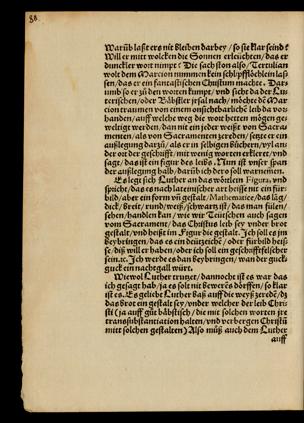 Warũb laßt ers nit bleiben darbey / so sie klar seind?
Will er mitt wolcken die Sonnen erleüchten / das er
dunckler wort nimpt? Die sach ston also / Tertulian
wolt dem Marcion nummen kein schlüpfflöchlein las-
sen / das er ein fantastischen Christum machte. Dar-
umb so er zů den worten kumpt / vnd sicht da der Lu-
terischen / oder Bäbstler irsal nach / möchte dẽ Mar
cion traumen von einem onsichtbarlichẽ leib da vor-
handen / auff welche weg die wort hetten mögen ge-
weltigt werden / dan mit ein jeder weißt von Sacra
menten / als von Sacramenten zereden / setzet er ein
außlegung darzů / als er in selbigen bůchern / vyl an-
der ort der geschrifft / mit wenig worten erkleret / vnd
sagt / das ist ein figur des leibs. Nun ist vnser span
der außlegung halb / darüb ich dero soll warnemen.
Es legt sich Luther an das wörtlein Figura / vnd
spricht / das es nach lateinischer art heisse nit ein für-
bild / aber ein form vñ gestalt / Mathematice / das läg /
dick / breit / rund / weiß / schwartz ist / das man fülen /
sehen / handlen kan / wie wir Teütschen auch sagen
vom Sacrament / das Christus leib sey vnder brot
gestalt / vnd heißt im Figur die gestalt. Ich soll es jm
beybringen / das es ein deützeiche / oder fürbild heis-
se / diß will er haben / oder ich soll ein geschrifftfelscher
sein. ꝛc. Ich werde es dan beybringen / wan der guck
guck ein nachtgall würt.
Wiewol Luther trutzet / dannocht ist es war das
ich gesagt hab / ja es solt nit bewerẽs dörffen / so klar
ist es. Es geliebt Luther baß auff die weyß zeredẽ / dz
das brot ein gestalt sey / vnder welcher der leib Chri-
sti (ja auff gůt bäbstisch / die mit solchen worten jre
transsubstantiation halten / vnd verbergen Christũ
mitt solchen gestalten) Also můß auch dem Luther
auff